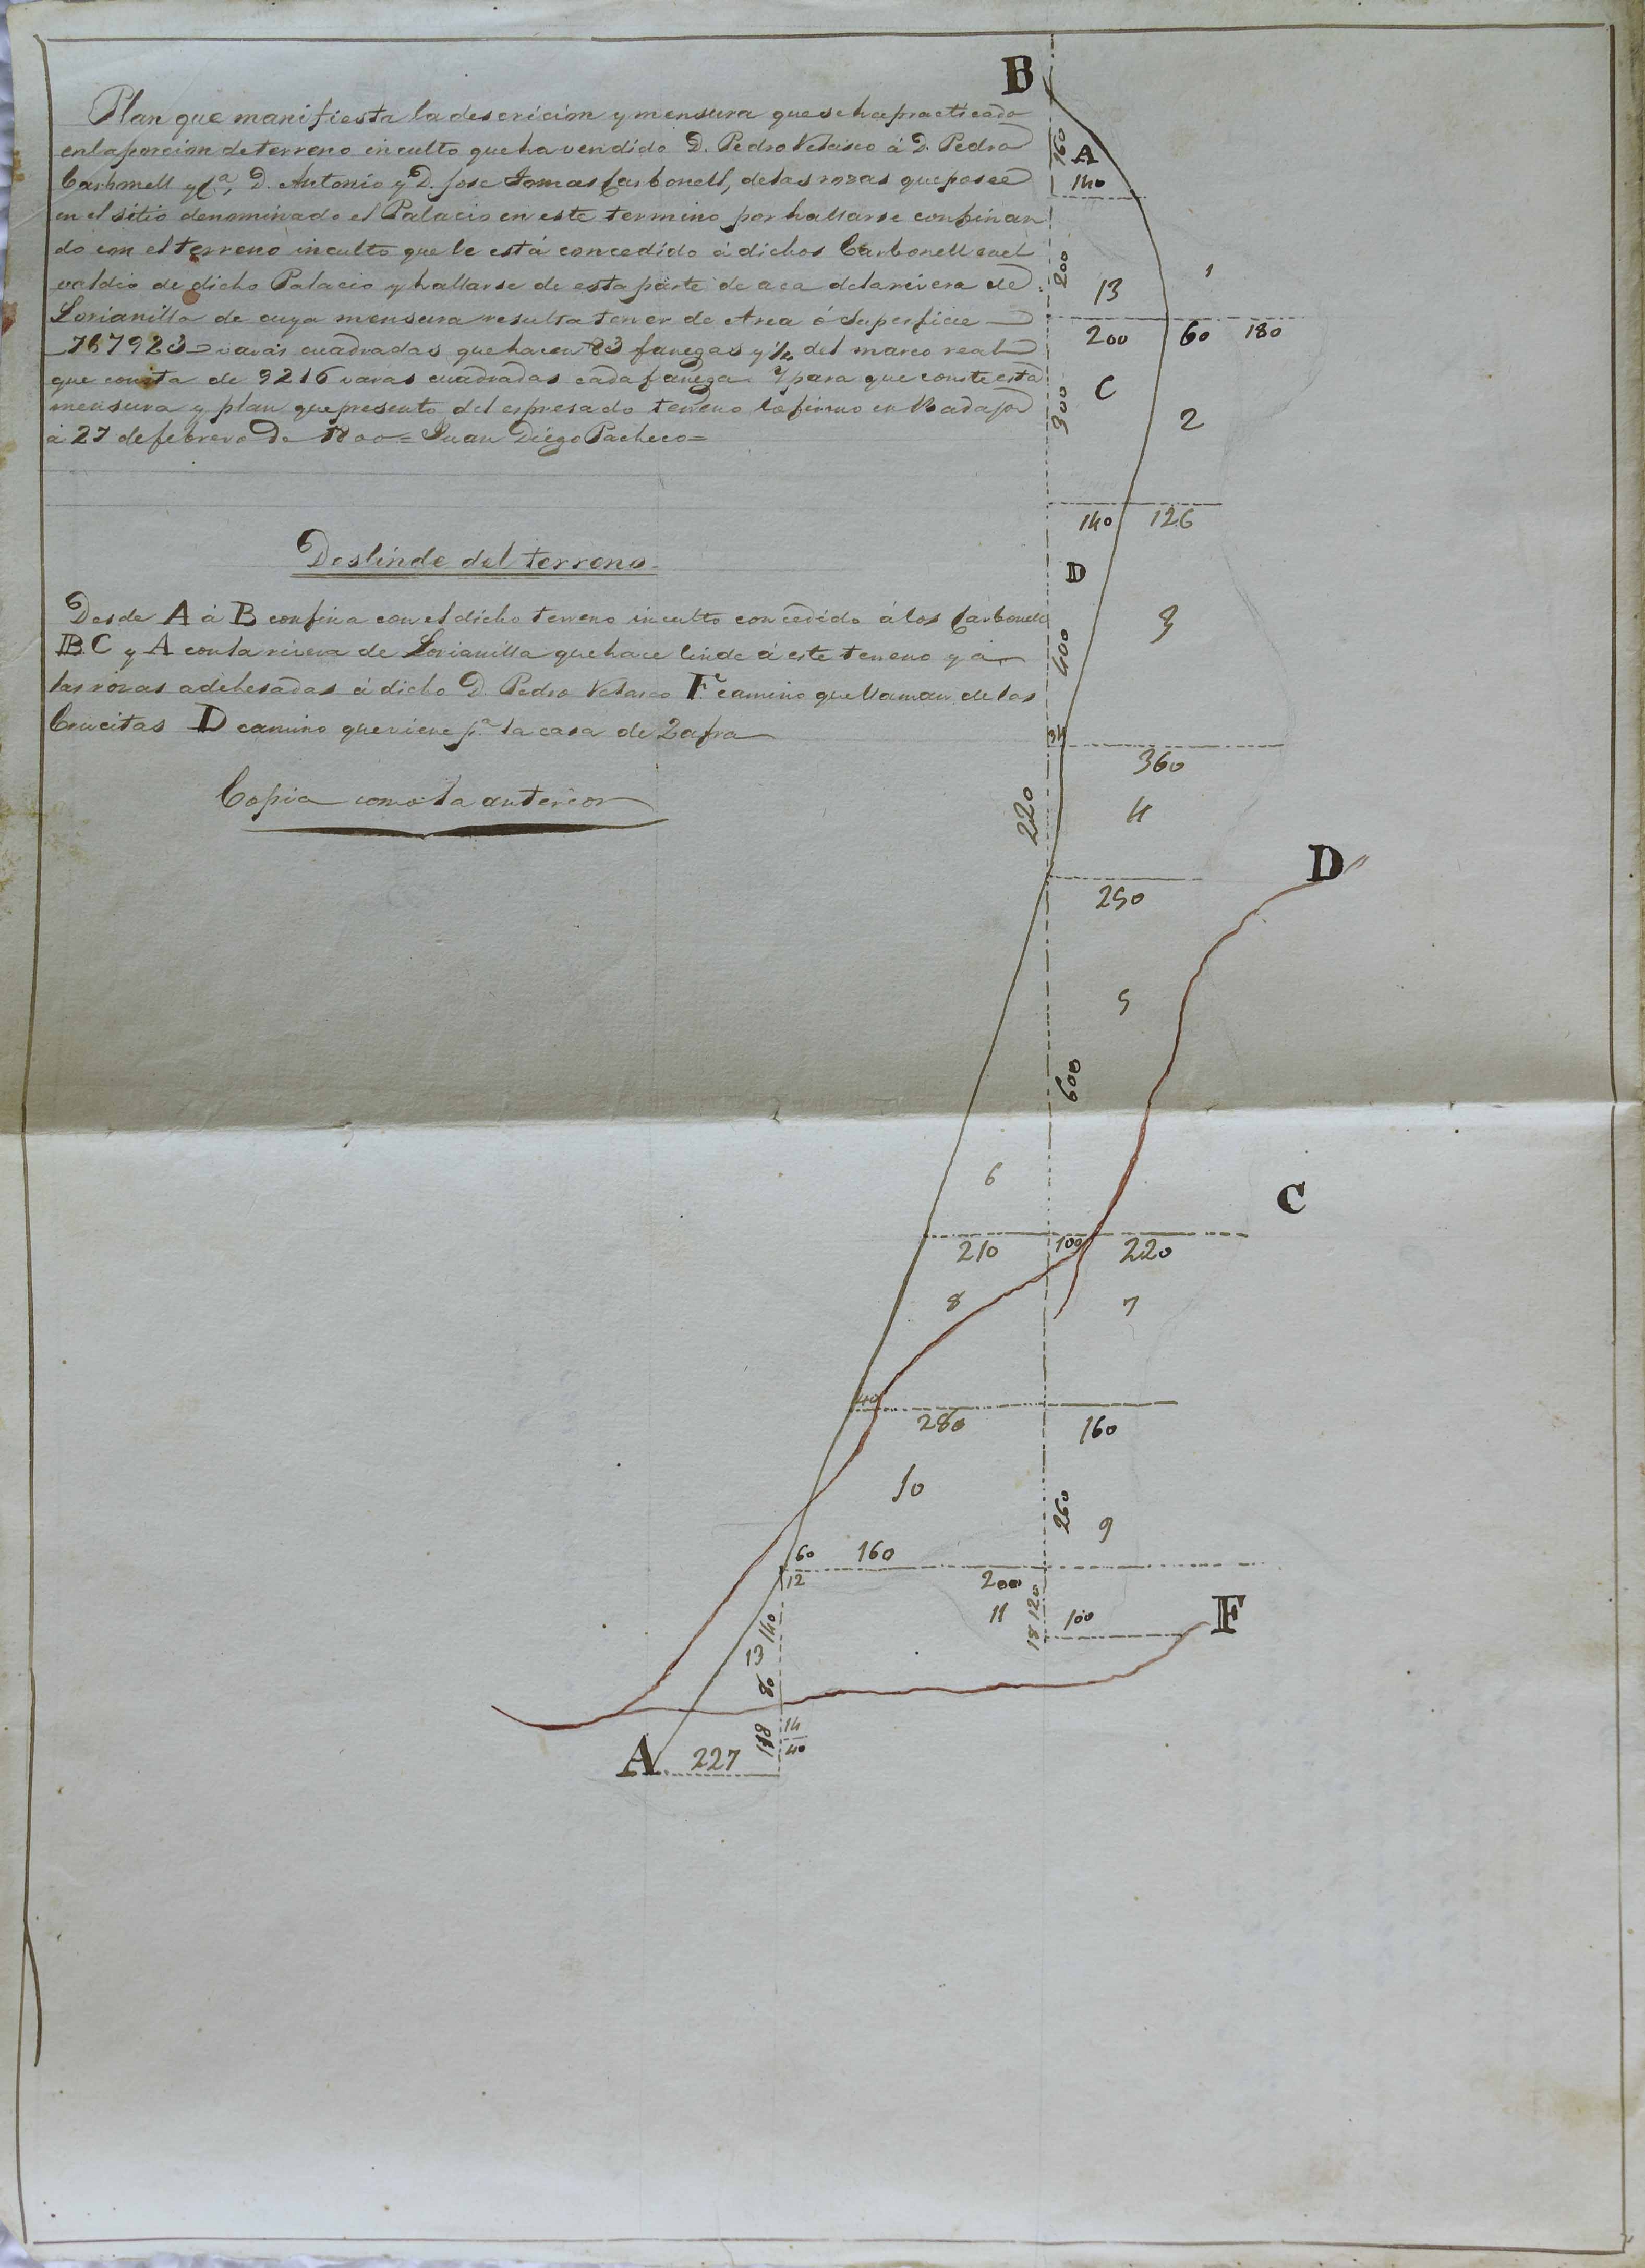 B
Plan que manifiesta la descricion y mensura que se ha practicado
en la porcion de terreno inculto que ha vendido D. Pedro Velasco á D. Pedro
Carbonell y C.ª, D. Antonio y D. Jose Tomas Carbonell, de las rozas que posee
en el sitio denominado el Palacio en este termino por hallarse confinan
do con el terreno inculto que le está concedido á dichos Carbonell en el
valdio de dicho Palacio y hallarse de esta parte de aca de la rivera de
Lorianilla de cuya mensura resulta tener de Area ó Superficie
767923 varas cuadradas que hacen 83 fanegas y ¼ del marco real
que consta de 9216 varas cuadradas cada fanega. Y para que conste esta
mensura y plan que presento del espresado terreno lo firmo en Badajoz
á 27 de febrero de 1800 = Juan Diego Pacheco =
160
A
140
200
13
1
200 60 180
300
C
2
140 126
D
3
400
Deslinde del terreno
Desde A á B confina con el dicho terreno inculto concedido á los Carbonell
B.C y A con la rivera de Lorianilla que hace linde á este terreno y á
las rozas adehesadas á dicho D. Pedro Velasco F. camino que llaman de las
Crucitas D camino que viene p.ª la casa de Zafra
Copia como la anterior
360
220
4
D
250
5
600
6
C
210 100 220
8
7
40
280 160
10
260
9
60 160
12
200
11
120
18
100
F
140
13
86
14
40
A 227